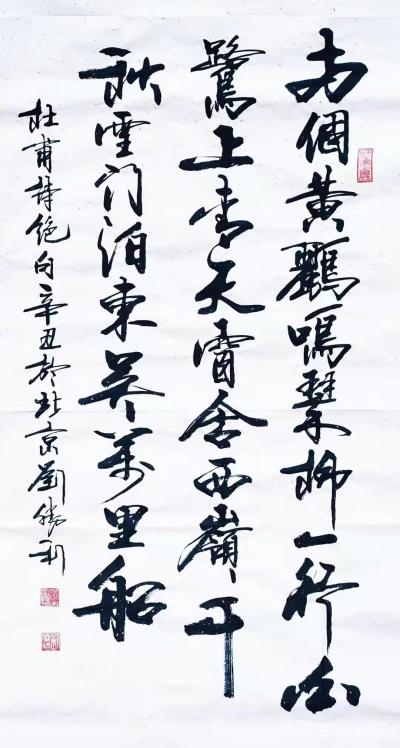 两個黄鸝鳴翠柳一行白
鷺上青天窗含西嶺千
秋雪门泊東吴萬里船
杜甫詩絶句辛丑於北京劉勝利